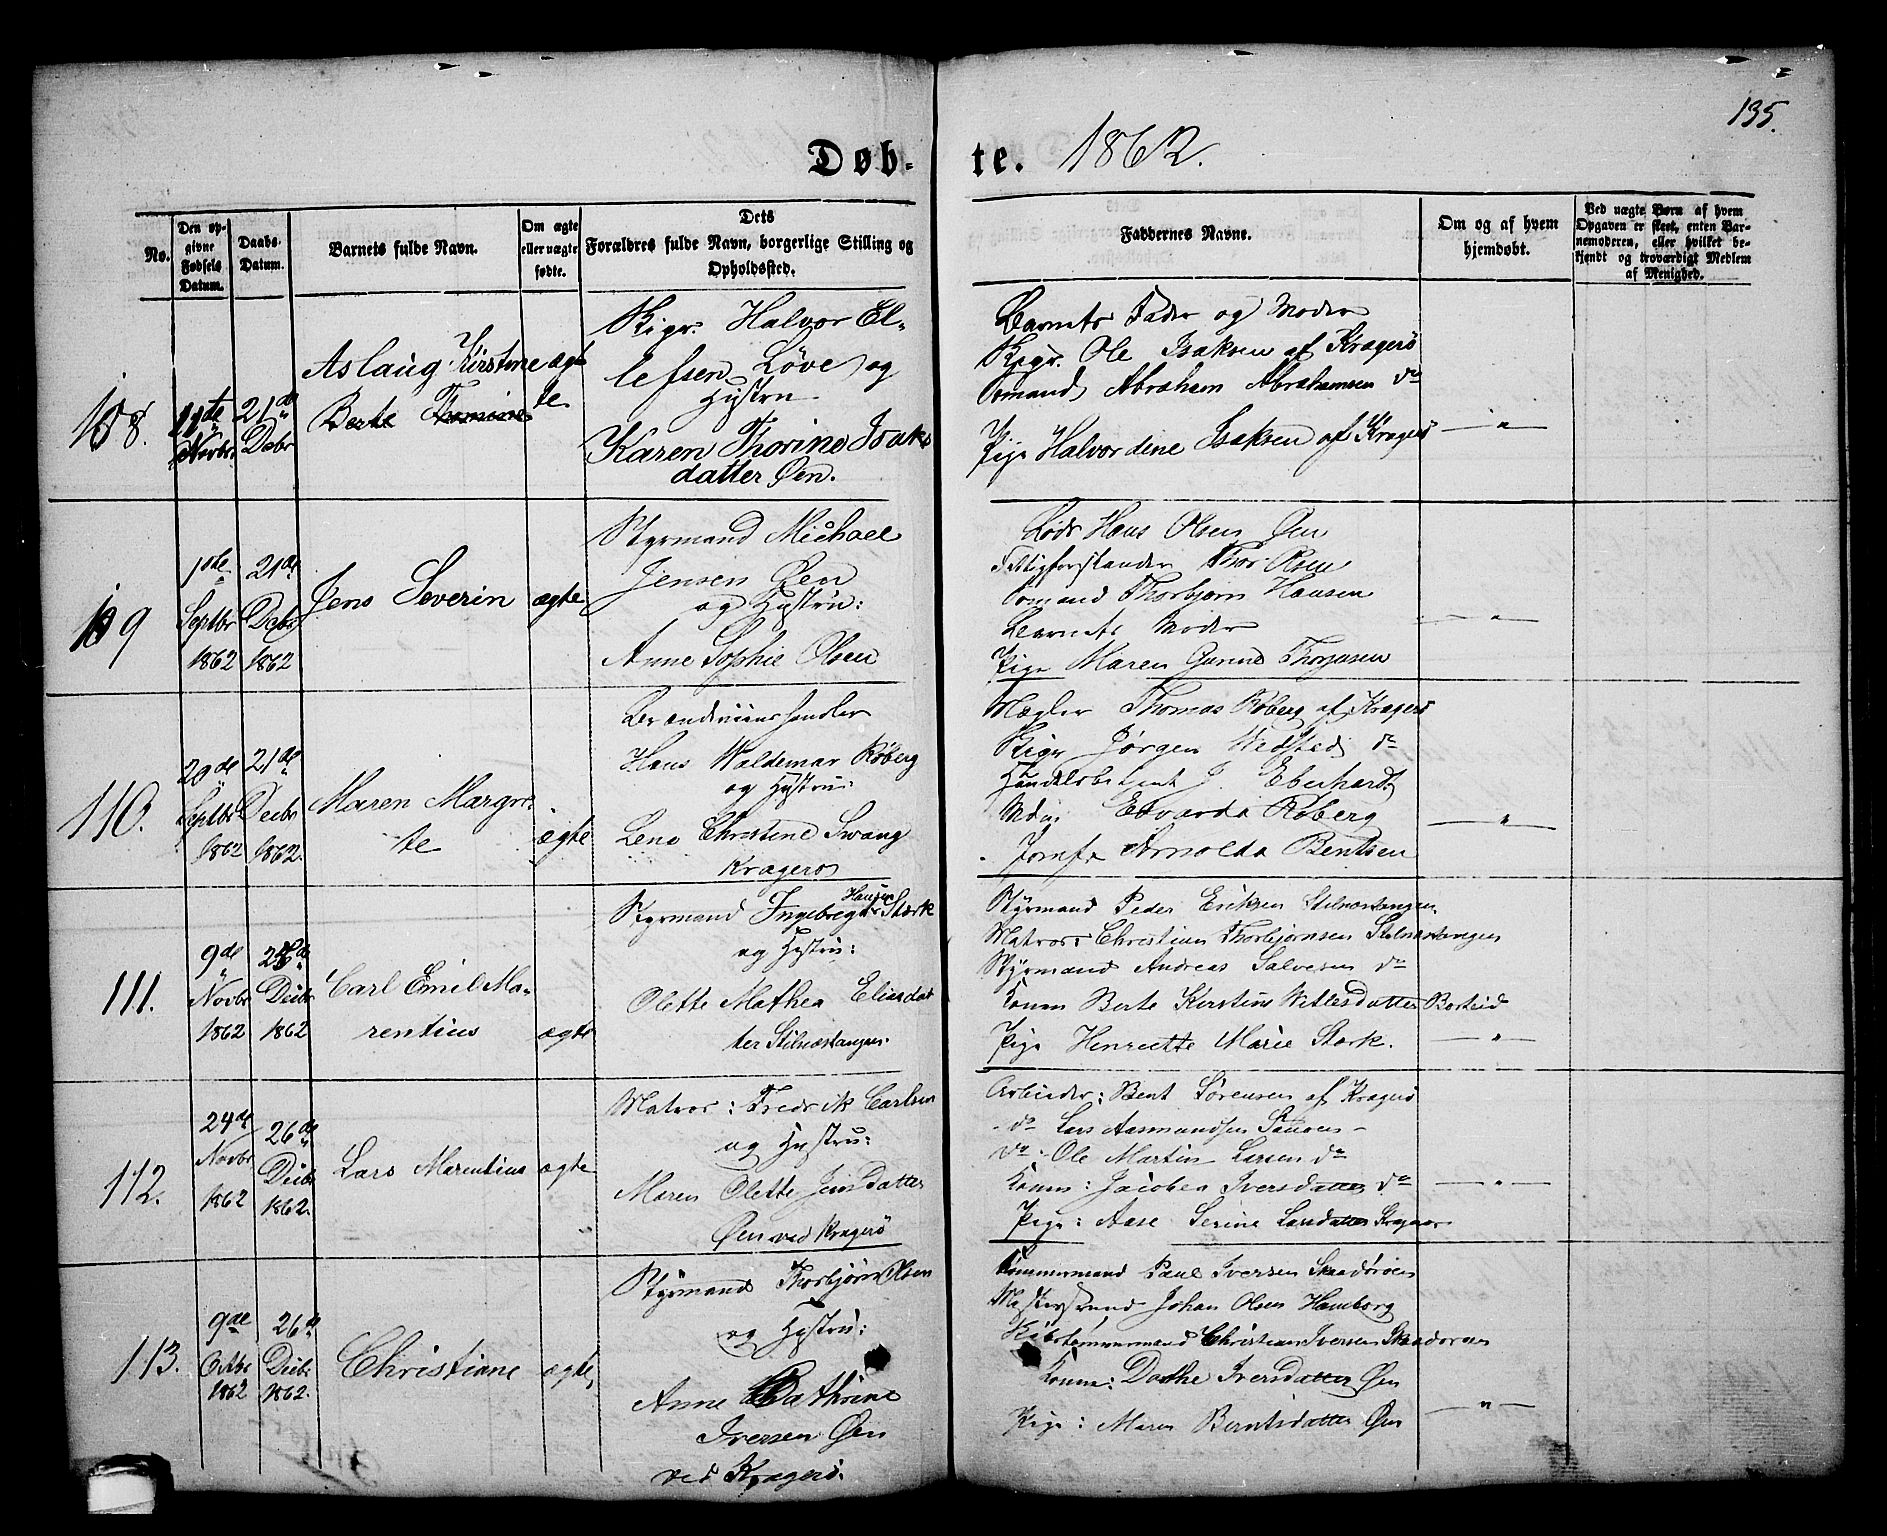 135.
Døb- te. 1862.
No.
Den op-
givne
Fødsels
Datum.
Daabs-
Datum.
Barnets fulde Navn.
Om ægte
eller uægte
født.
Dets
Forældres fulde Navn, borgerlige Stilling og
Opholdssted.
Faddernes Navne.
Om og af hvem
hjemdøbt.
Ved uægte Børn af hvem
Opgaven er skeet, enten Bar-
nemoderen, eller hvilket be-
kjendt og troværdigt Medlem
af Menighed.
108.
11te
Novbr
21de
Debr
Aslaug Kirstine
Berte
ægte
Halvor El-
lefsen Løve og
Hystru
Karen Thorine Isaks
datter Øen.
Barnets Fader og Moder
Ole Isaksen af Kragerø
Abraham Abrahamsen do
Pige Halvordine Isaksen af Kragerø
109
1ste
Septbr
1862
21de
Debr
1862
Jens Severin
ægte
Styrmand Michael
Jensen Øen
og Hystru:
Anne Sophie Olsen
Lods Hans Olsen Øen
Fattigforstander Thor Olsen
Thorbjørn Hansen
Barnets Moder
Pige Maren Thorjusen
110.
20de
Septbr
1862
21de
Decbr
1862.
Maren Margre-
te
ægte
Hans Waldemar Røberg
og Hystru:
Lena Christine Swang
Kragerø
Mægler Thomas Røberg af Kragerø
Jørgen Wedsted do
Handelsbetjent J. Eberhardt
Edvarda Røberg
Jomfr Arnolda Bentsen
111.
9de
Novbr
1862
Decbr
1862
Carl Emil Ma-
rentius
ægte
Hansen
Styrmand Ingebregt Stærk
og Hystru:
Olette Mathea Eliasdat
ter Stilnæstangen.
Styrmand Peder Eriksen Stilnæstangen.
Matros: Christian Thorbjørnsen Stilnæstangen
Styrmand Andreas Salvesen do
Konen Berte Kirstine
Pige Henriette Marie Stærk.
112.
24de
Novbr
1862
26de
Decbr
1862.
Lars Marentius
ægte
Matros: Fredrik Carlsen
og Hystru:
Maren Olette Jensdatter
Øen ved Kragerø
Arbeider: Bent Sørensen af Kragerø
do Lars Aasmundsen
do Ole Martin Larsen do
Konen: Jacobea Iversdatter do
Pige: Aase Serine Larsdatter
113.
9de
Octbr
1862
26de
Decbr
1862.
Christiane
ægte
Styrmand Thorbjørn Olsen
og Hystru:
Anne Cathrine
Iversen Øen
ved Kragerø.
Tømmermand Paul Iversen Skaadøroen
Johan Olsen Hamborg
Tømmermand Christian Iversen
Konen: Dorthe Iversdatter Øen
Pige: Maren Berntsdatter Øen